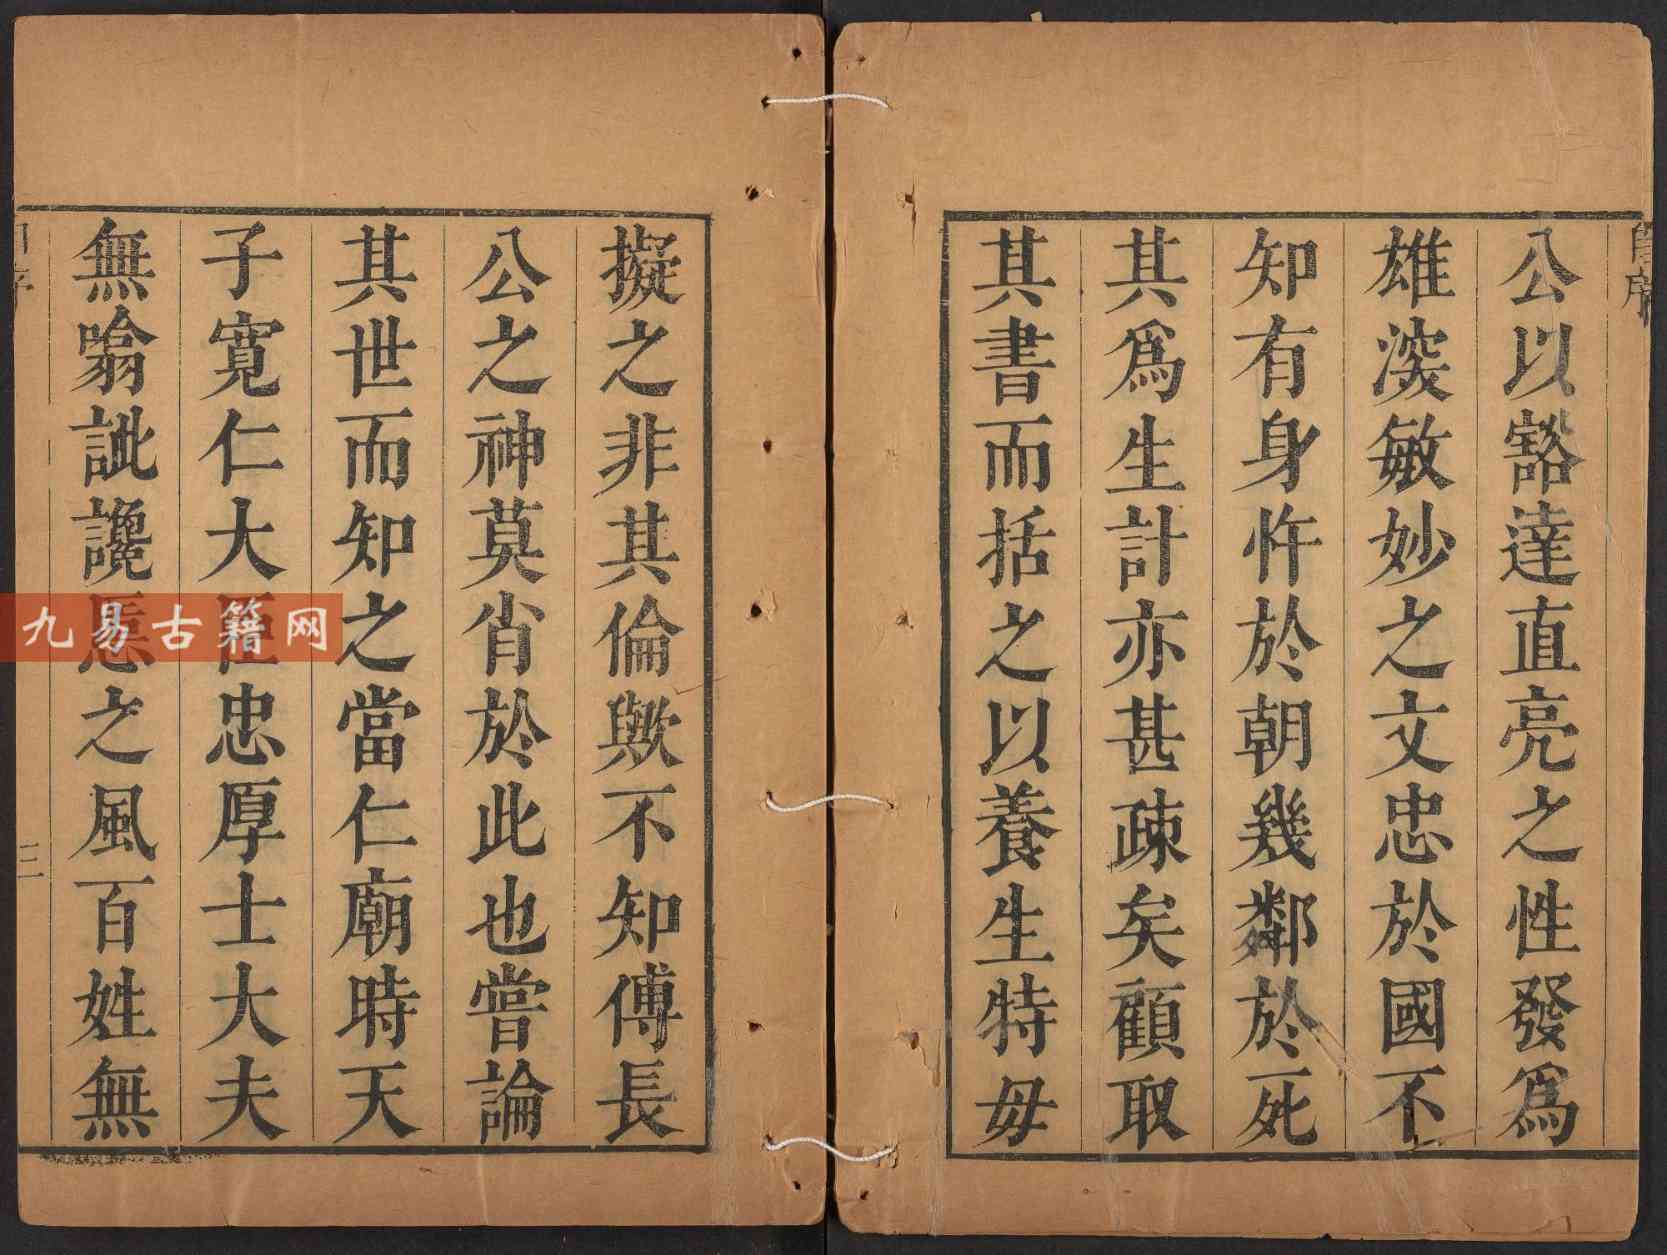 公以豁達直亮之性發爲
雄深敏妙之文忠於國不
知有身忤於朝幾鄰於死
其爲生計亦甚疎矣顧取
其書而括之以養生特毋
擬之非其倫歟不知傅長
公之神莫肖於此也嘗論
其世而知之當仁廟時天
子寬仁大臣忠厚士大夫
無噏訿讒慝之風百姓無
三
九易古籍网